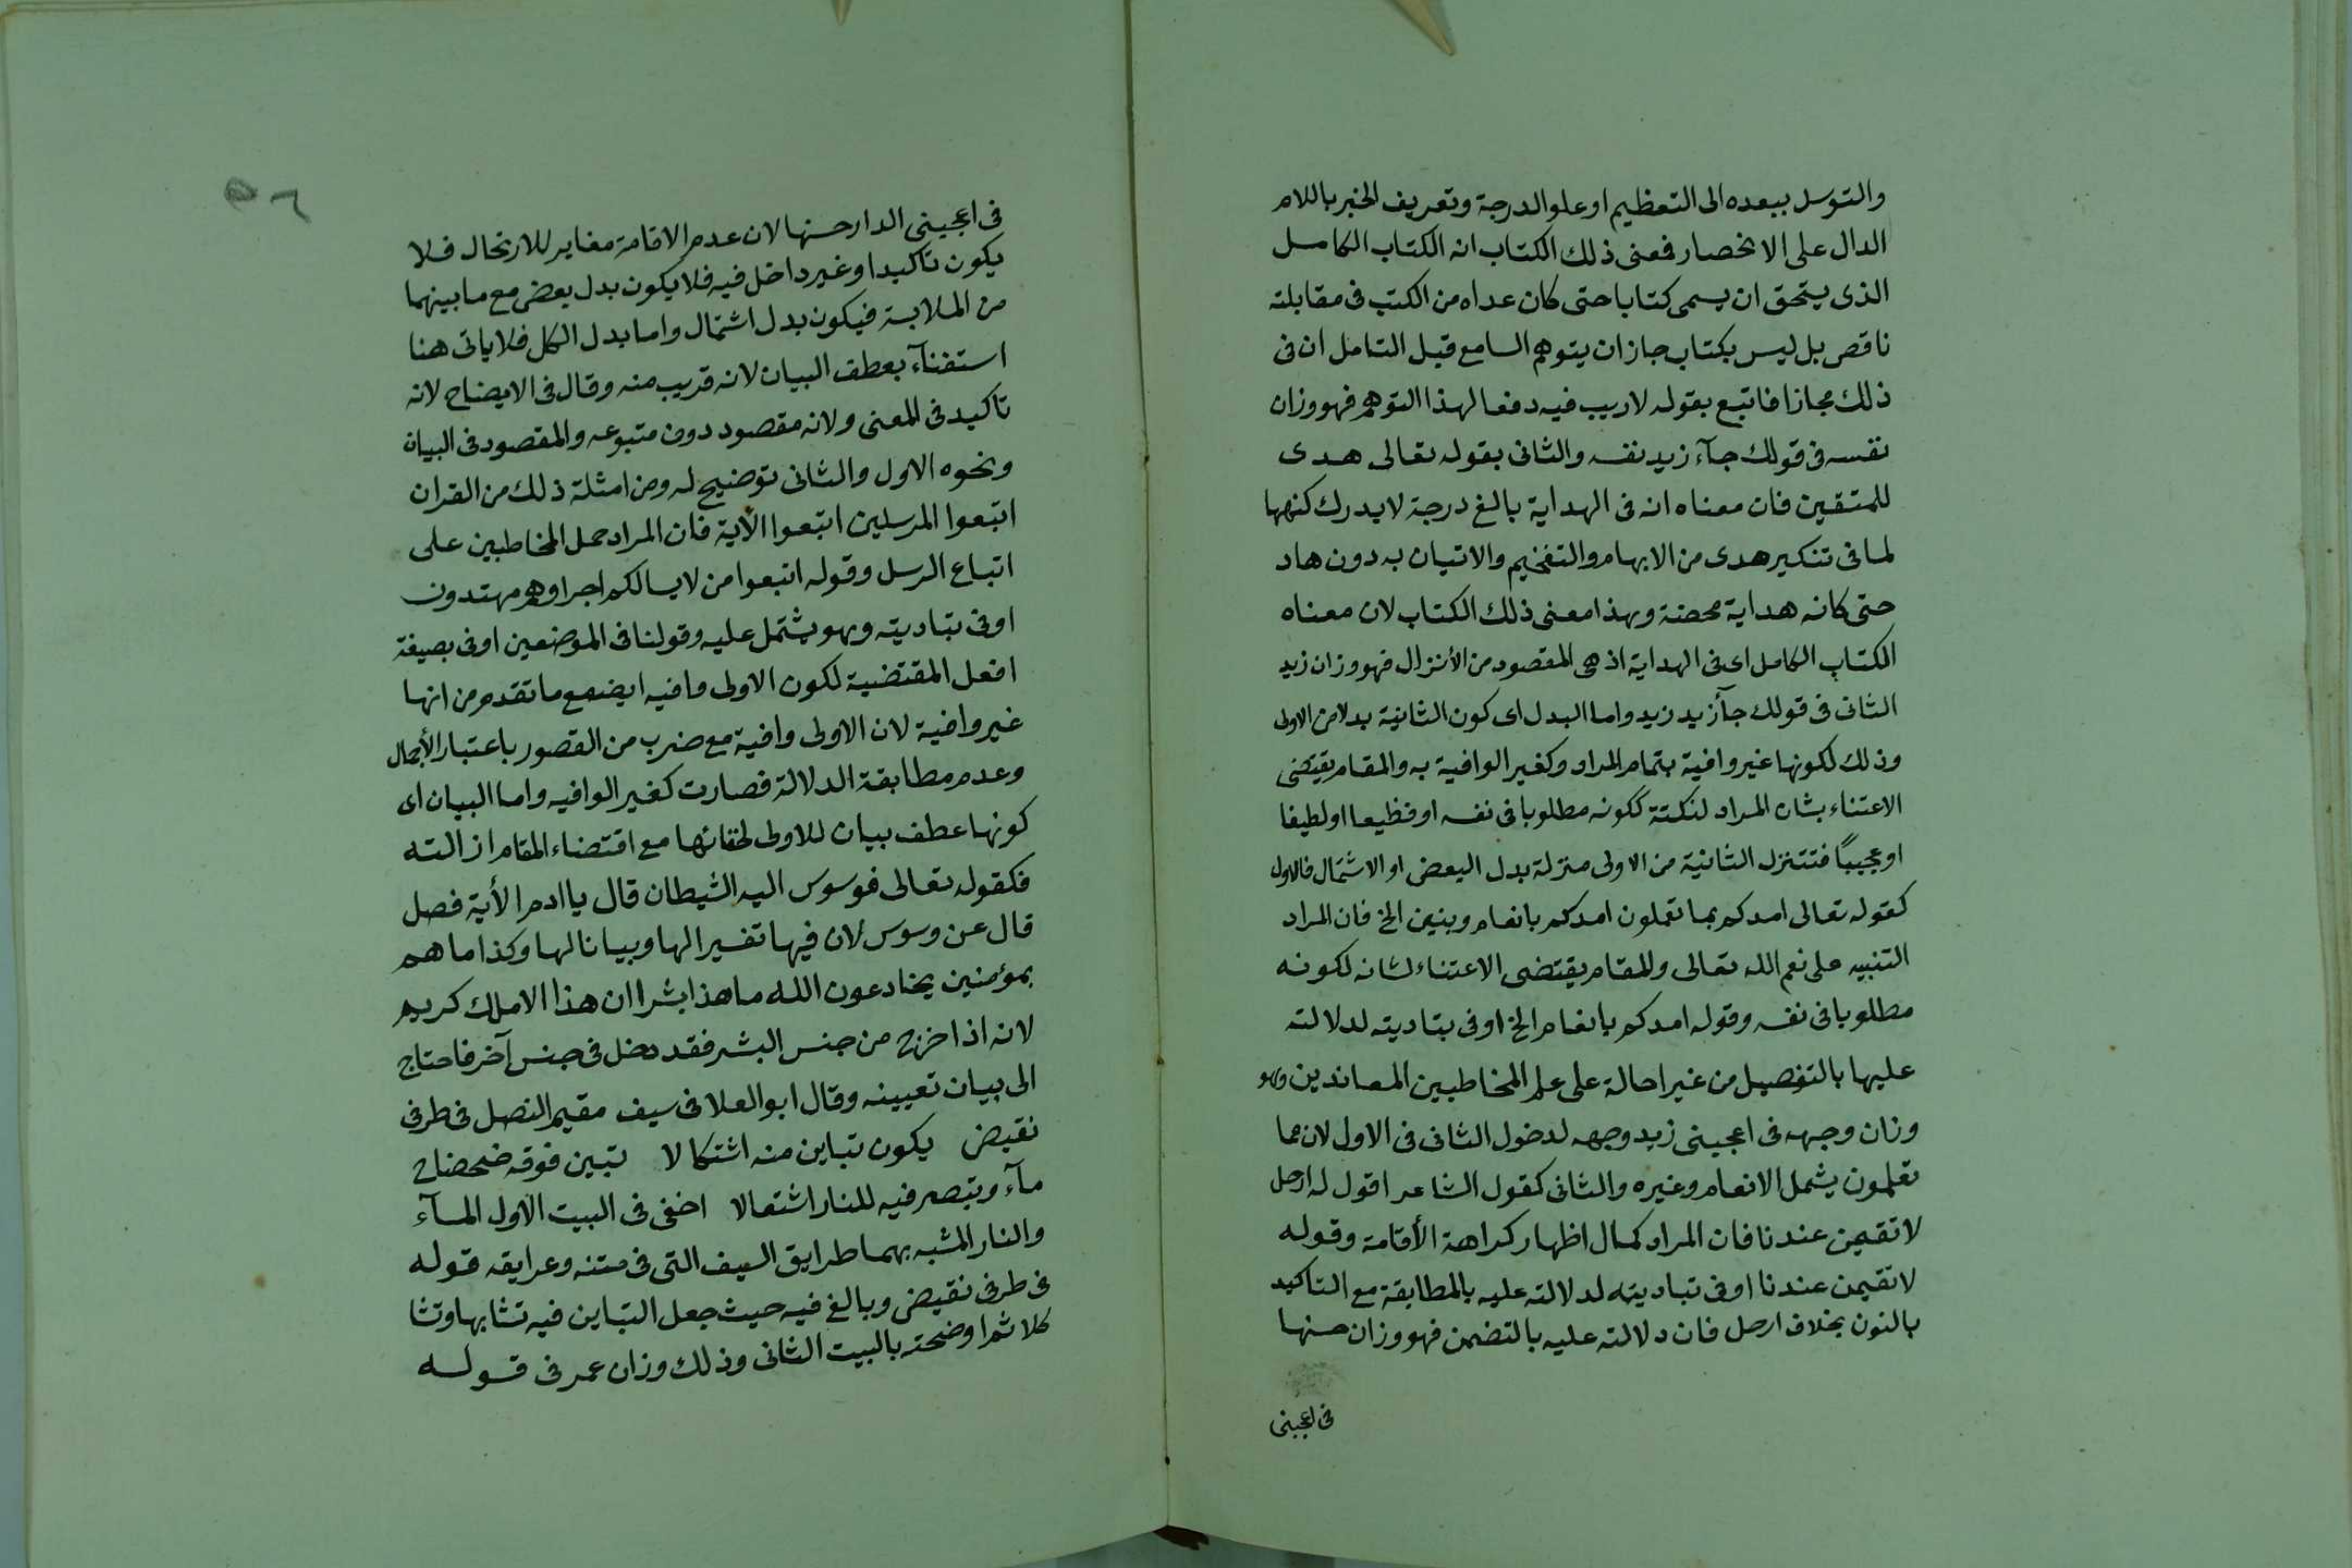 والتوسل ببعده الى التعظيم او علو الدرجة وتعريف الخبر باللام
الدال على الانحصار فمعنى ذلك الكتاب انه الكتاب الكامل
الذى يستحق ان يسمى كتابا حتى كان عداه من الكتب فى مقابلته
ناقص بل ليس بكتاب جاز ان يتوهم السامع قبل التامل ان فى
ذلك مجازا فاتبع بقوله لاريب فيه دفعا لهذا التوهم فهو وزان
نفسه فى قولك جآء زيد نفسه والثانى بقوله تعالى هدى
للمتقين فان معناه انه فى الهداية بالغ درجة لايدرك كنهها
لما فى تنكير هدى من الابهام والتفخيم والاتيان به دون هاد
حتى كانه هداية محضة وبهذا معنى ذلك الكتاب لان معناه
الكتاب الكامل اى فى الهداية اذ هى المقصود من الأنزال فهو وزان زيد
الثانى فى قولك جآزيد زيد واما البدل اى كون الثانية بدلا من الاولى
وذلك لكونها غير وافية بتمام المراد وكغير الوافية به والمقام يقتضى
الاعتناء بشان المراد لنكتة ككونه مطلوبا فى نفسه او فظيعا او لطيفا
او عجيبًا فتتنزل الثانية من الاولى منزلة بدل البعض او الاشتمال فالاول
كقوله تعالى امدكم بما تعملون امدكم بانعام وبنين الخ فان المراد
التنبيه على نعم الله تعالى والمقام يقتضى الاعتناء لشانه لكونه
مطلوبا فى نفسه وقوله امدكم بانعام الخ اوفى بتاديته لدلالته
عليها بالتفصيل من غير احالة على علم المخاطبين المعاندين وهو
وزان وجهه فى اعجبنى زيد وجهه لدخول الثانى فى الاول لان مما
تعلمون يشمل الانعام وغيره والثانى كقول الشاعر اقول له ارحل
لا تقيمن عندنا فان المراد كمال اظهار كراهة الأقامة وقوله
لاتقيمن عندنا اوفى تباديته لدلالته عليه بالمطابقة مع التاكيد
بالنون بخلاف ارحل فان دلالته عليه بالتضمن فهو وزان حسنها
فى اعجبنى
٥٦
فى اعجبنى الدار حسنها لان عدم الاقامة مغاير للارتحال فلا
يكون تاكيدا وغير داخل فيه فلا يكون بدل بعض مع ما بينهما
من الملابسة فيكون بدل اشتمال واما بدل الكل فلا ياتى هنا
استغنآء بعطف البيان لانه قريب منه وقال فى الايضاح لانه
تاكيد فى المعنى ولانه مقصود دون متبوعه والمقصود فى البيان
ونحوه الاول والثانى توضيح له ومن امثلة ذلك من القران
اتبعوا المرسلين اتبعوا الآية فان المراد حمل المخاطبين على
اتباع الرسل وقوله اتبعوا من لايسالكم اجرا وهم مهتدون
اوفى بتاديته وهو يشتمل عليه وقولنا فى الموضعين اوفى بصيغة
افعل المقتضية لكون الاولى وافيه ايضا مع ما تقدم من انها
غير وافية لان الاولى وافية مع ضرب من القصور باعتبار الأجمال
وعدم مطابقة الدلالة فصارت كغير الوافيه واما البيان اى
كونها عطف بيان للاولى لخفائها مع اقتضاء المقام ازالته
فكقوله تعالى فوسوس اليه الشيطان قال ياادم الأية فصل
قال عن وسوس لان فيها تفسيرا لها وبيانا لها وكذا ما هم
بمؤمنين يخادعون الله ما هذا بشرا ان هذا الا ملك كريم
لانه اذا خرج من جنس البشر فقد دخل فى جنس آخر فاحتاج
الى بيان تعيينه وقال ابو العلا فى سيف مقيم النصل فى طرفى
نقيض يكون تباين منه اشتكالا تبين فوقه ضحضاح
مآء ويتبصر فيه للنار اشتعالا اخفى فى البيت الاول المآء
والنار المشبه بهما طرايق السيف التى فى متنه وعرايقه قوله
فى طرفى نقيض وبالغ فيه حيث جعل التباين فيه تشابها وتشا
كلا ثم اوضحته بالبيت الثانى وذلك وزان عمر فى قوله